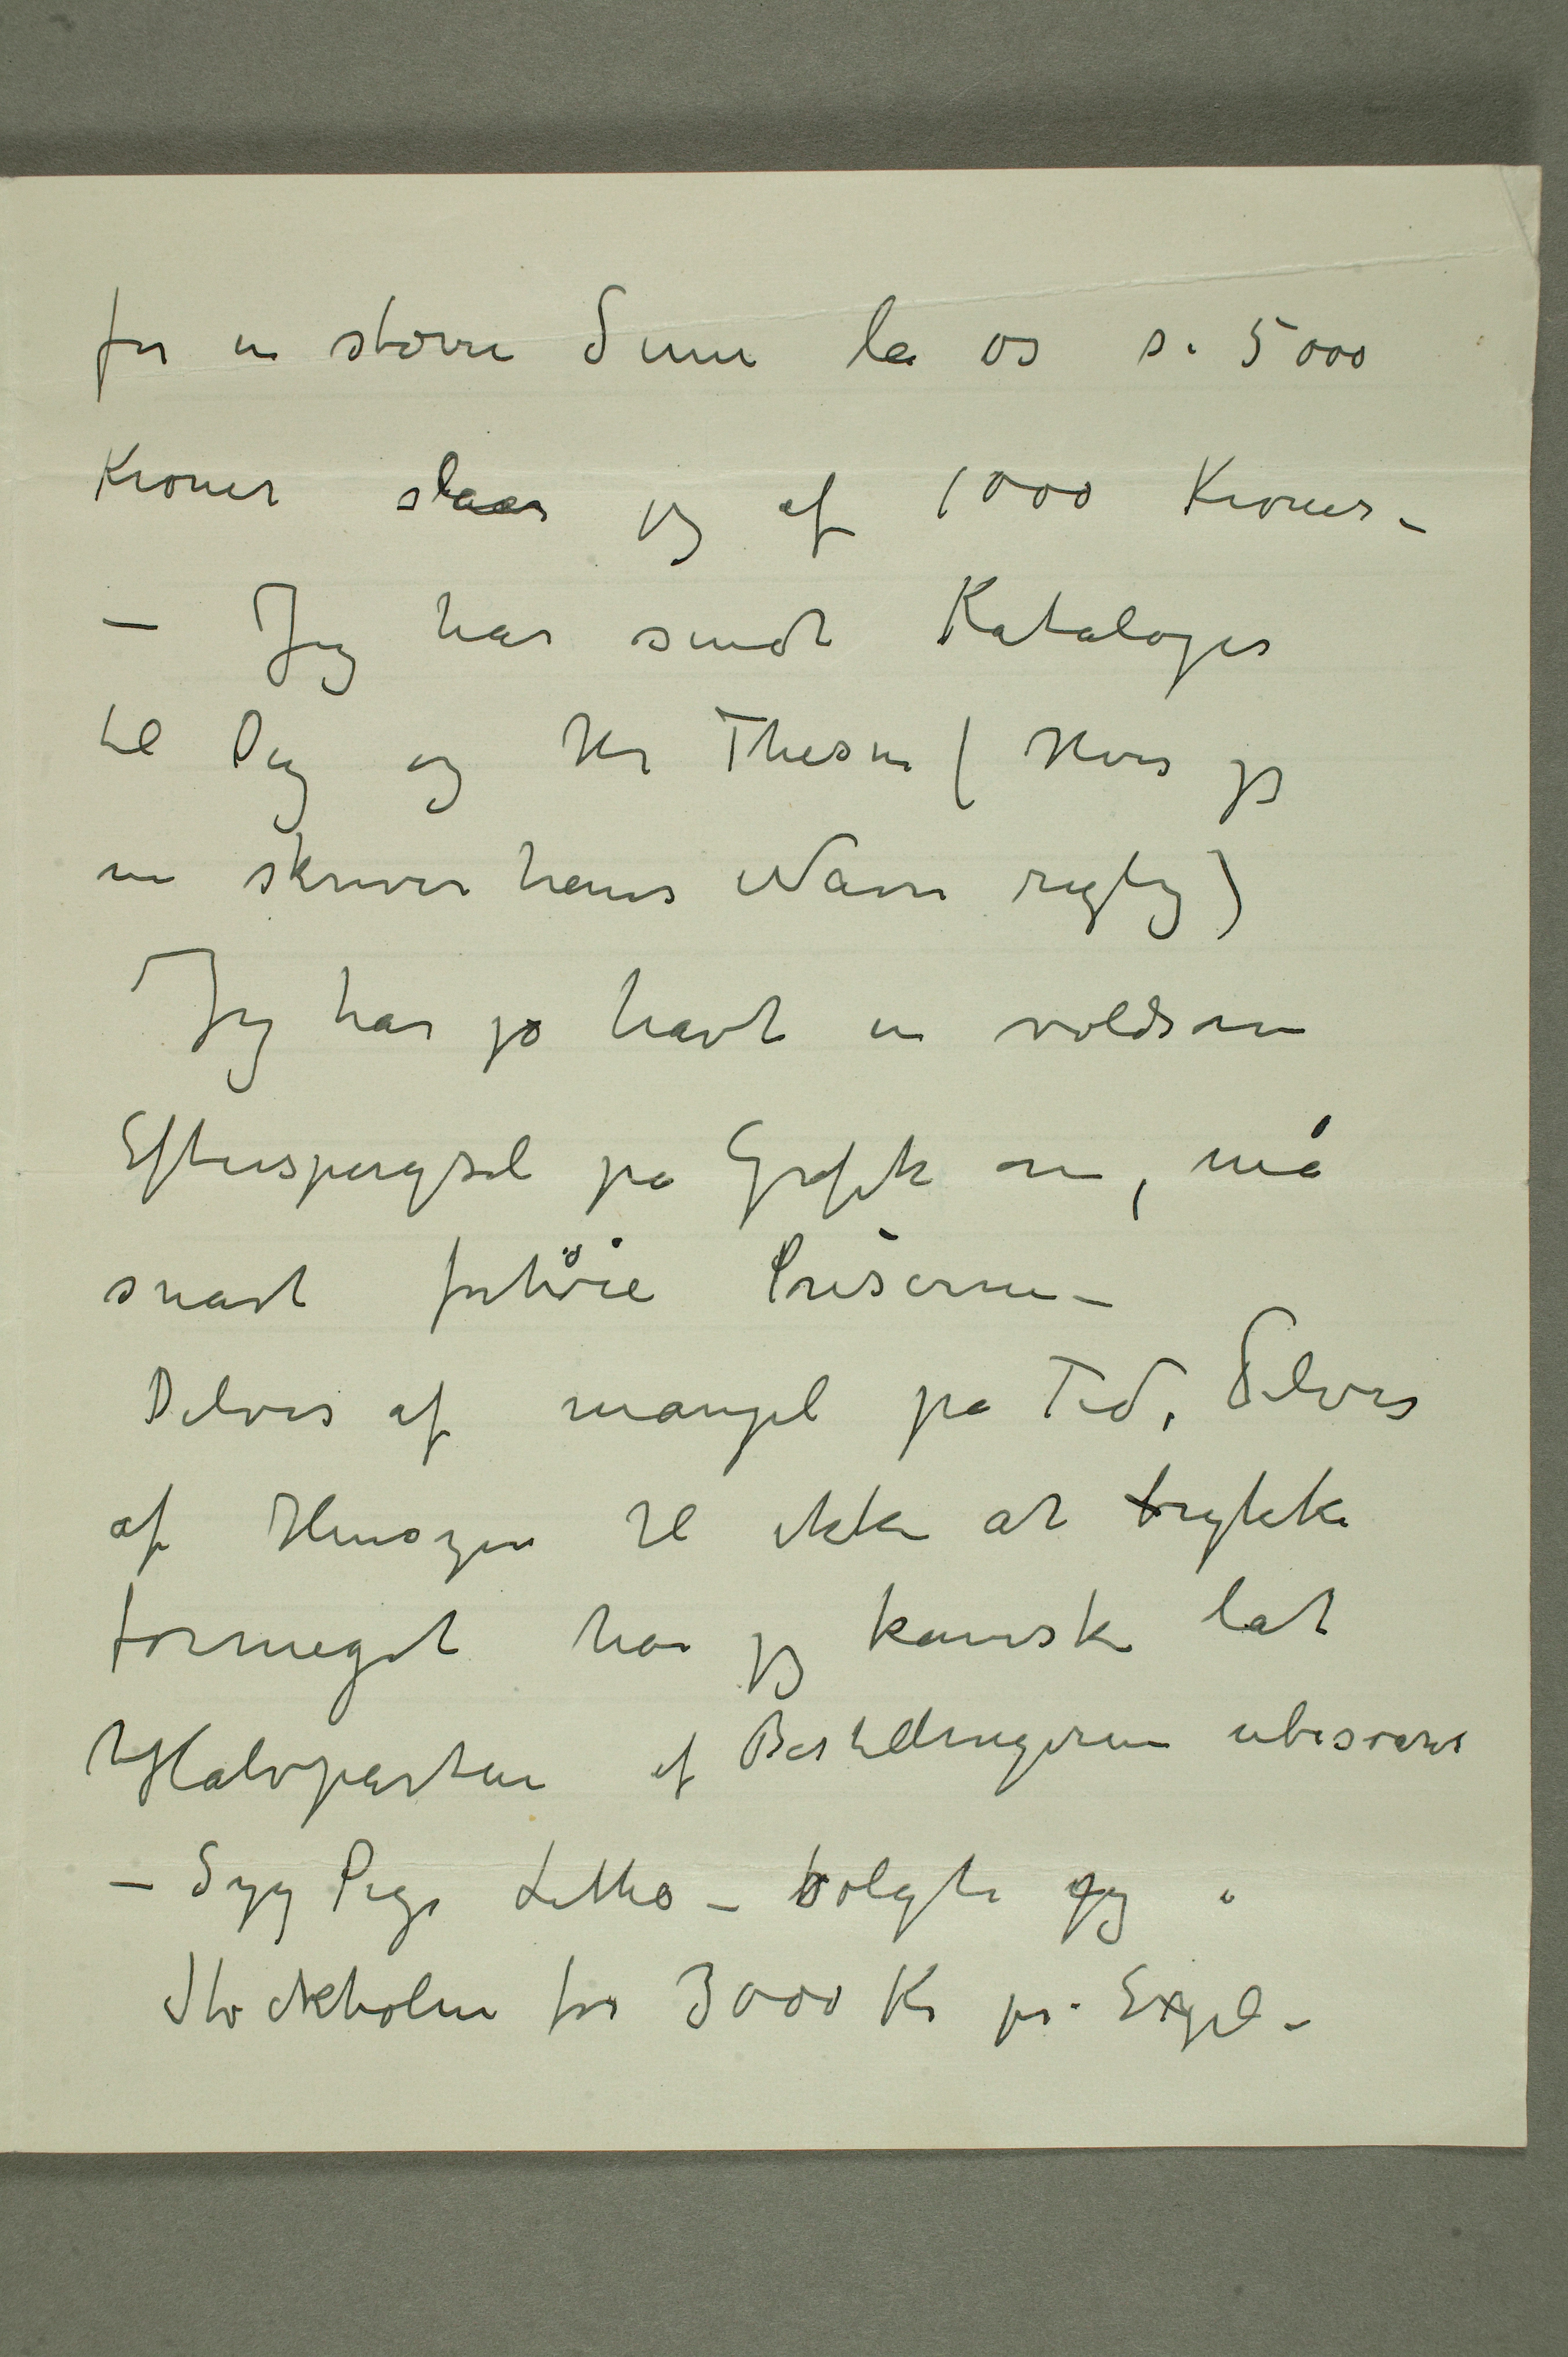 for en større Sum la os si 5000
Kroner slaar jeg af 1000 Kroner –
– Jeg har sendt Kataloger
til Dig og Hr Thesen ( Hvis jeg
nu skriver hans Navn rigtig )
Jeg har jo havt en voldsom
Efterspørgsel på Grafik om, må
snart forhöie Priserne –
Delvis af mangel på Tid, Delvis
af Hensyn til ikke at trykke
formeget har jeg kanske lat
Halvparten af Bestillingerne ubesvaret
– Syg Pige Litho – solgte jeg i
Stockholm for 3000 Kr pr. Expl –